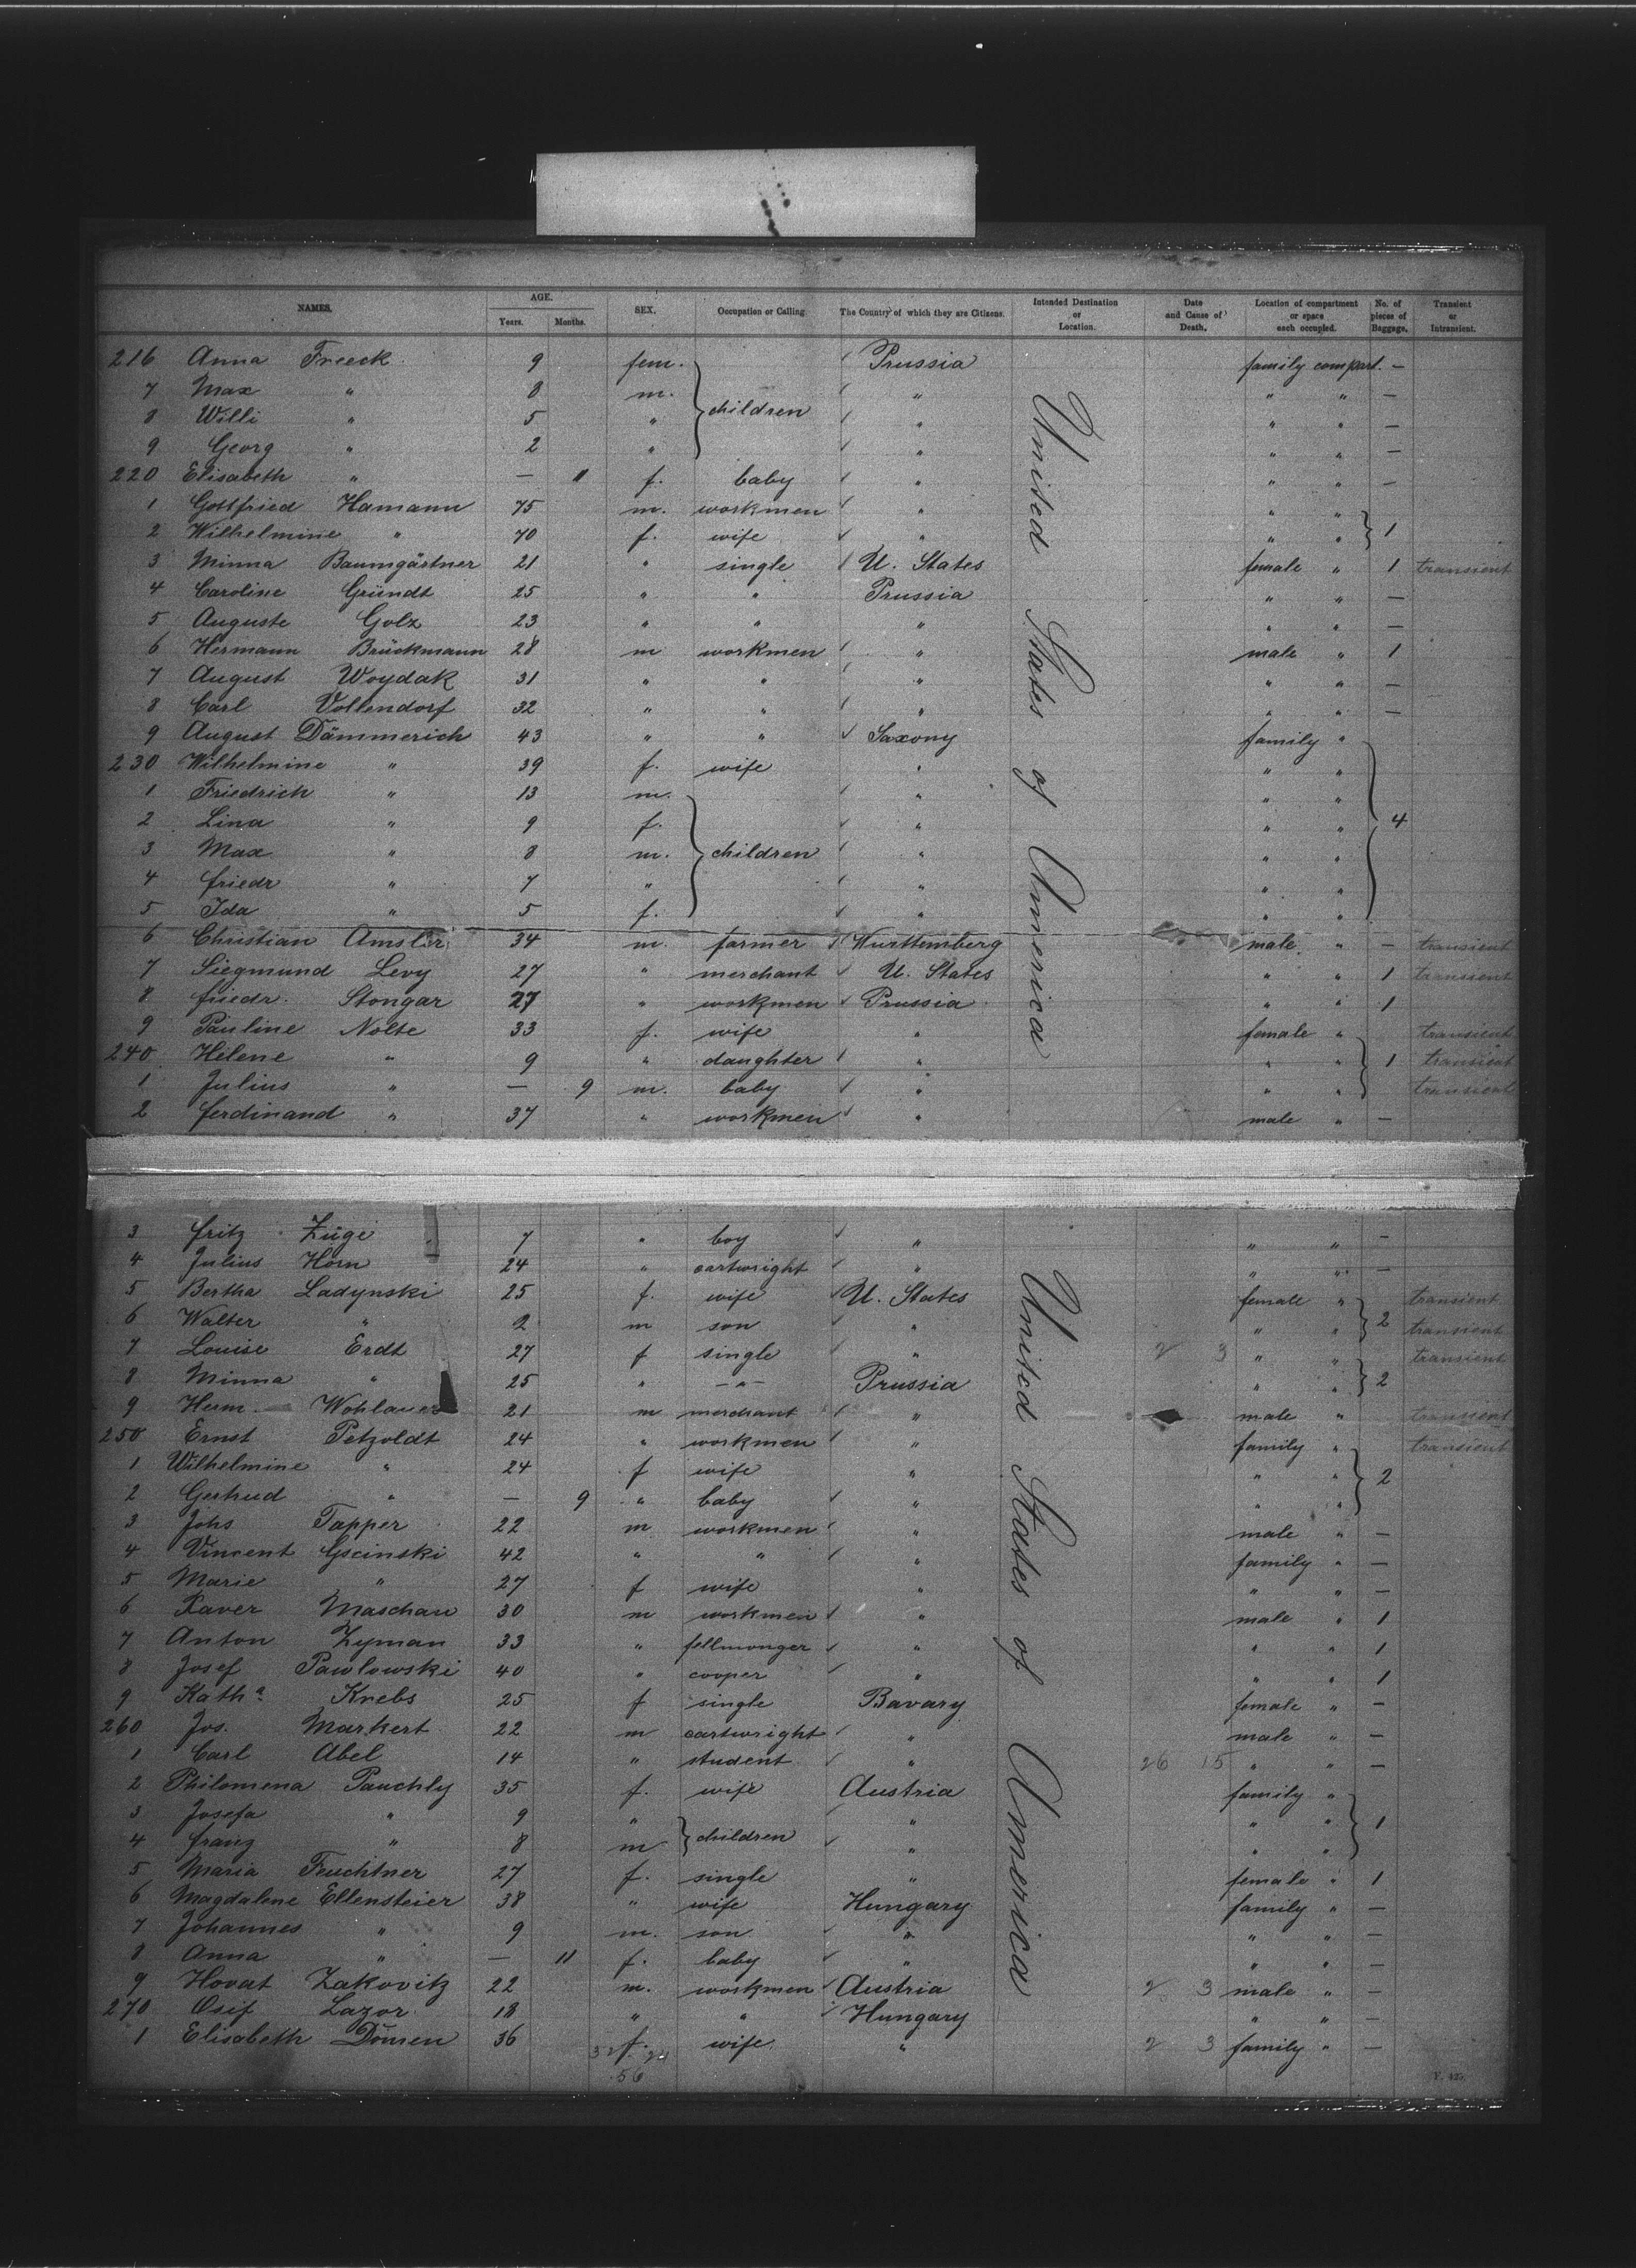 NAMES. AGE. Years. Months. SEX. Occupation or Calling. The Country of which they are Citizens. Intended Destination or Location. Date and Cause of Death. Location of compartment or space each occupied. No. of pieces of Baggage. Transient or Intransient.
216 Anna Freeck 9 fem. Prussia family compart. —
7 Max " 8 m. " " " —
8 Willi " 5 " children " " " —
9 Georg " 2 " " " " —
220 Elisabeth " — 11 f. baby " " " —
1 Gottfried Hamann 75 m. workmen " " "
2 Wilhelmine " 70 f. wife " " " 1
3 Minna Baumgärtner 21 " single U. States female " 1 transient
4 Caroline Gründt 25 " " Prussia " " —
5 Auguste Golz 23 " " " " " —
6 Hermann Brückmann 28 m workmen " male " 1
7 August Woydak 31 " " " " " —
8 Carl Vollendorf 32 " " " " " —
9 August Dämmerich 43 " " Saxony family "
230 Wilhelmine " 39 f. wife " " "
1 Friedrich " 13 m. " " "
2 Lina " 9 f. " " " 4
3 Max " 8 m. children " " "
4 friedr " 7 " " " "
5 Ida " 5 f. " " "
6 Christian Amsler 34 m. farmer Wurttemberg male " — transient
7 Siegmund Levy 27 " merchant U. States " " 1 transient
8 friedr. Stongar 27 " workmen Prussia " " 1
9 Pauline Nolte 33 f. wife " female " transient
240 Helene " 9 " daughter " " " 1 transient
1 Julius " — 9 m. baby " " " transient
2 ferdinand " 37 " workmen " male " —
United States of America
3 fritz Zügi 7 " boy " " " —
4 Julius Horn 24 " cartwright " " " —
5 Bertha Ladynski 25 f. wife U. States female " transient
6 Walter " 2 m son " " " 2 transient
7 Louise Erdt 27 f single " 2 3 " " transient
8 Minna " 25 " — " — Prussia " " 2
9 Herm. Wohlauer 21 m merchant " male " transient
250 Ernst Petzoldt 24 " workmen " family " transient
1 Wilhelmine " 24 f wife " " " 2
2 Gertrud " — 9 " baby " " "
3 Johs Tapper 22 m workmen " male " —
4 Vincent Gscinski 42 " " " family " —
5 Marie " 27 f wife " " " —
6 Xaver Maschau 30 m workmen " male " 1
7 Anton Zyman 33 " fellmonger " " " 1
8 Josef Pawlowski 40 " cooper " " " 1
9 Katha Krebs 25 f single Bavary female " —
260 Jos. Markert 22 m cartwright " male " —
1 Carl Abel 14 " student " 26 15 " " —
2 Philomena Pauchly 35 f. wife Austria family "
3 Josefa " 9 " children " " " 1
4 franz " 8 m " " "
5 Maria Feuchtner 27 f. single " female " 1
6 Magdalene Ellensteier 38 " wife Hungary family " —
7 Johannes " 9 m. son " " " —
8 Anna " — 11 f. baby " " " —
9 Hovat Zakovitz 22 m. workmen Austria 2 3 male " —
270 Osif Lazor 18 " " Hungary " " —
1 Elisabeth Dömen 36 f. wife " 2 3 family " —
United States of America
32 24
56